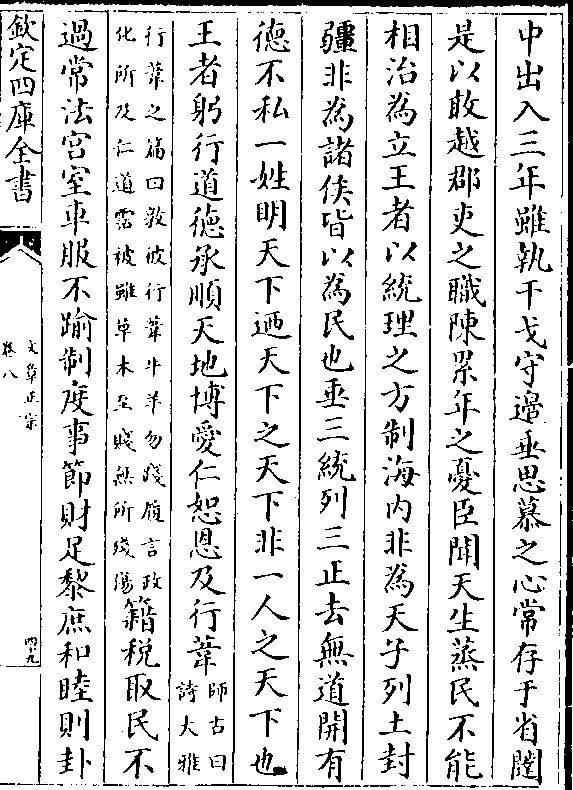 中出入三年雖執干戈守邉垂思慕之心常存于省闥
是以敢越郡吏之職陳累年之憂臣聞天生蒸民不能
相治為立王者以統理之方制海内非為天子列土封
疆非為諸侯皆以為民也垂三統列三正去無道開有
徳不私一姓明天下廼天下之天下非一人之天下也
王者躬行道徳承順天地博愛仁恕恩及行葦師古曰詩大雅
行葦之篇曰敦彼行葦牛羊勿踐履言政化所及仁道霑被雖草木至賤無所殘傷籍稅取民不
過常法宫室車服不踰制度事節財足黎庶和睦則卦
欽定四庫全書
文章正宗
卷八
四十九